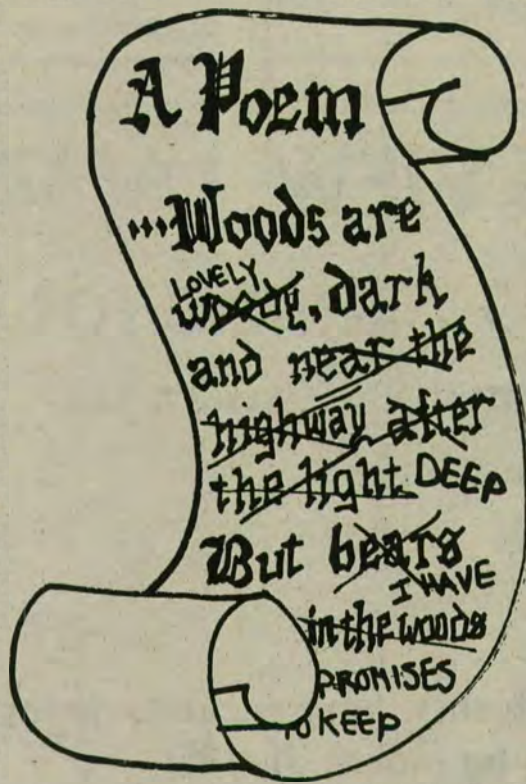 A Poem
...Woods are
LOVELY
woody, dark
and near the
highway after
the light DEEP
But bears
I HAVE
in the woods
PROMISES
TO KEEP